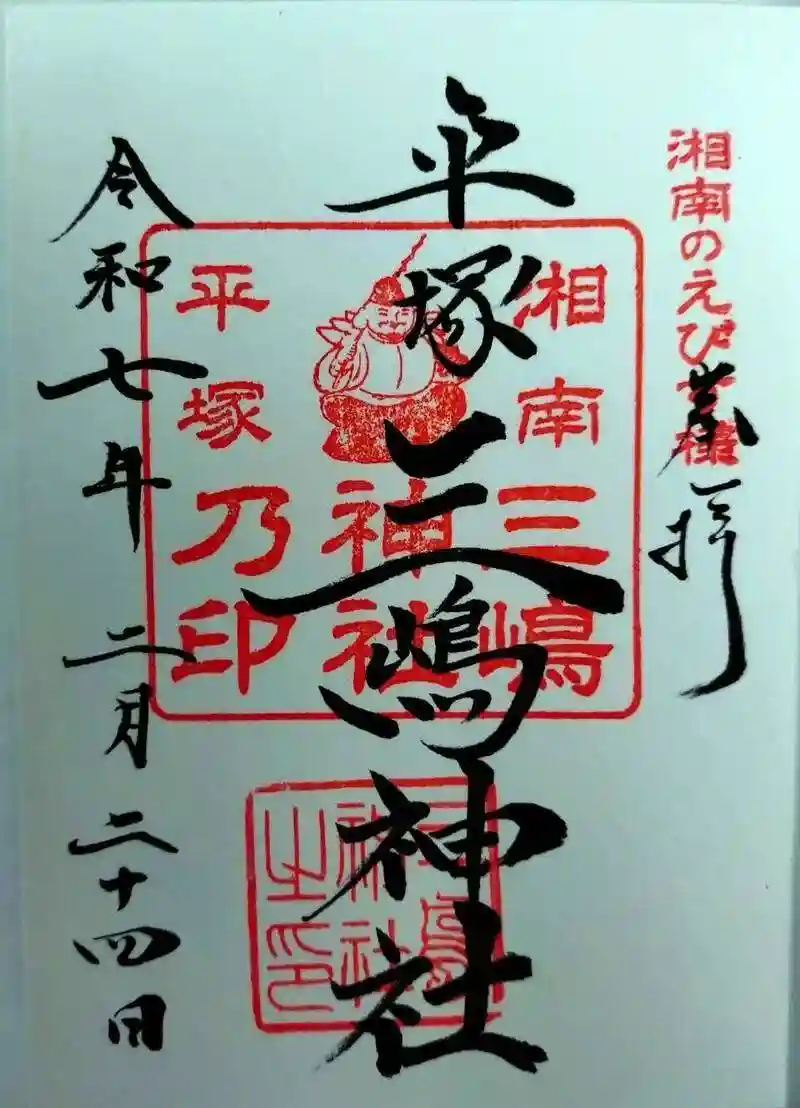 湘南のえびす様
奉拝
平塚三嶋神社
湘南
三嶋
神社
平塚
乃印
三嶋
神社
之印
令和七年二月二十四日